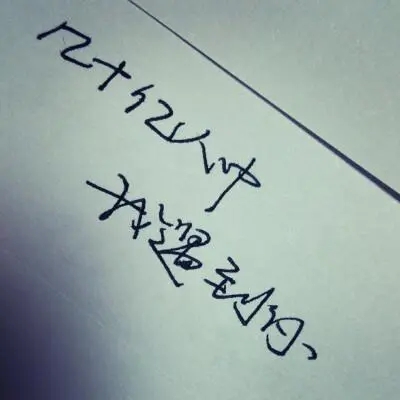 几十亿人中
我遇到你